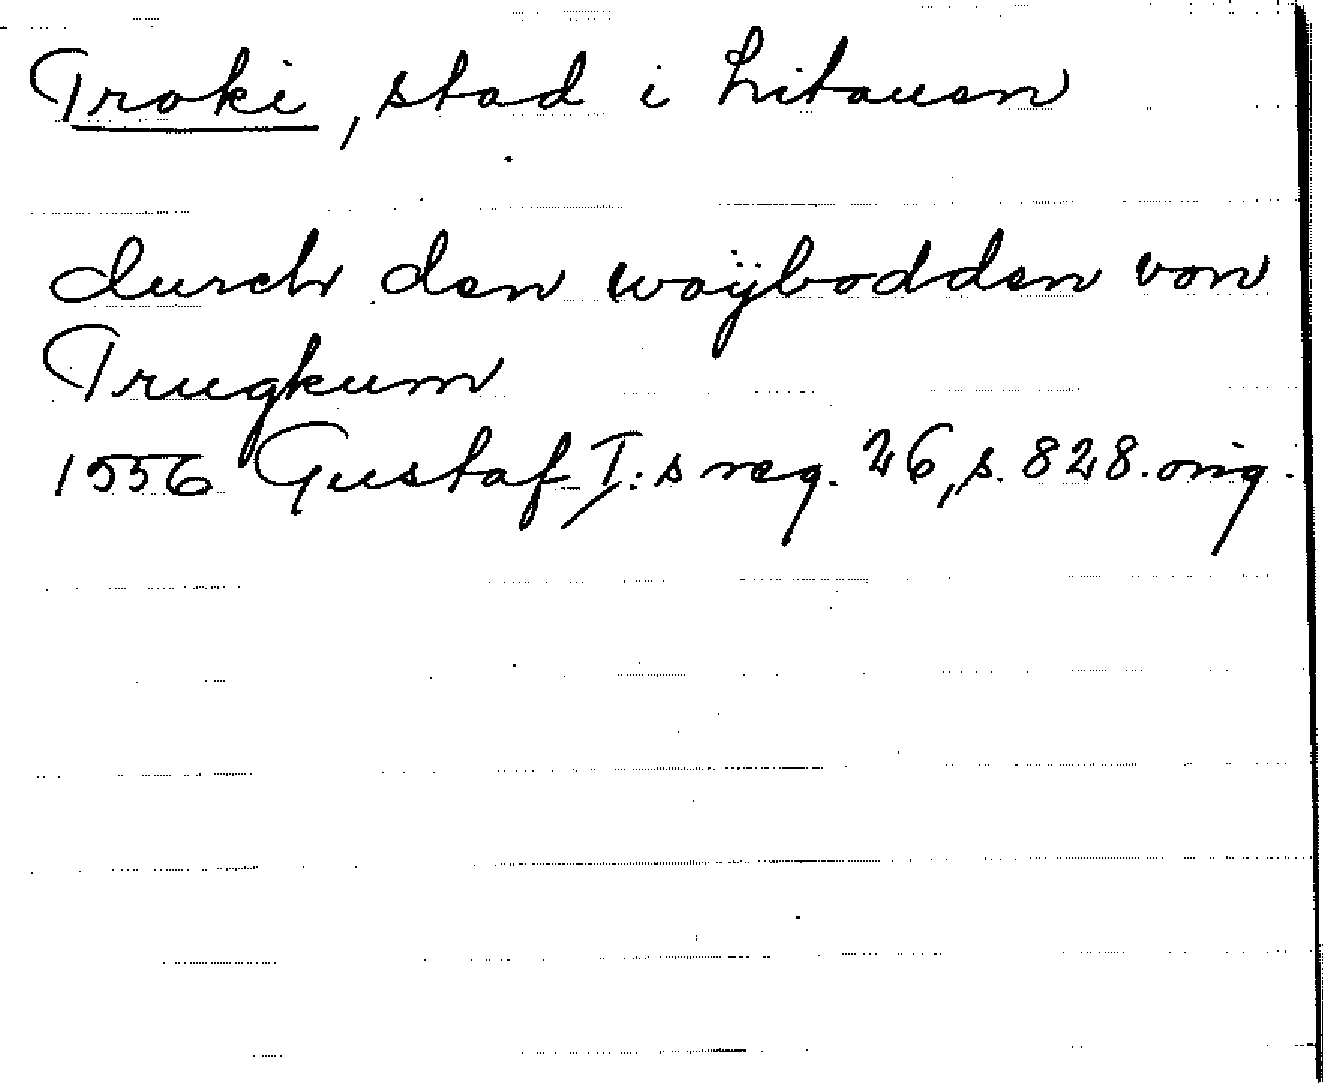 Troki, stad i Litauen
durch den woÿbodden von
Trugkum
1556 Gustaf I:s reg. 26, s. 828. orig.